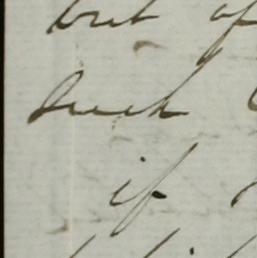 but of
such
if